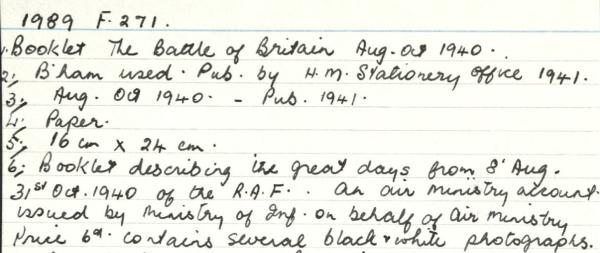 1989 F.271.
1. Booklet The Battle of Britain Aug.-Oct 1940.
2. B'ham used. Pub. by H.M. Stationery Office 1941.
3. Aug. Oct 1940. - Pub. 1941.
4. Paper.
5. 16 cm x 24 cm.
6. Booklet describing the great days from 8' Aug.
31st Oct. 1940 of the R.A.F. . An air ministry account.
issued by Ministry of Inf. on behalf of Air Ministry
Price 6d. contains several black & white photographs.